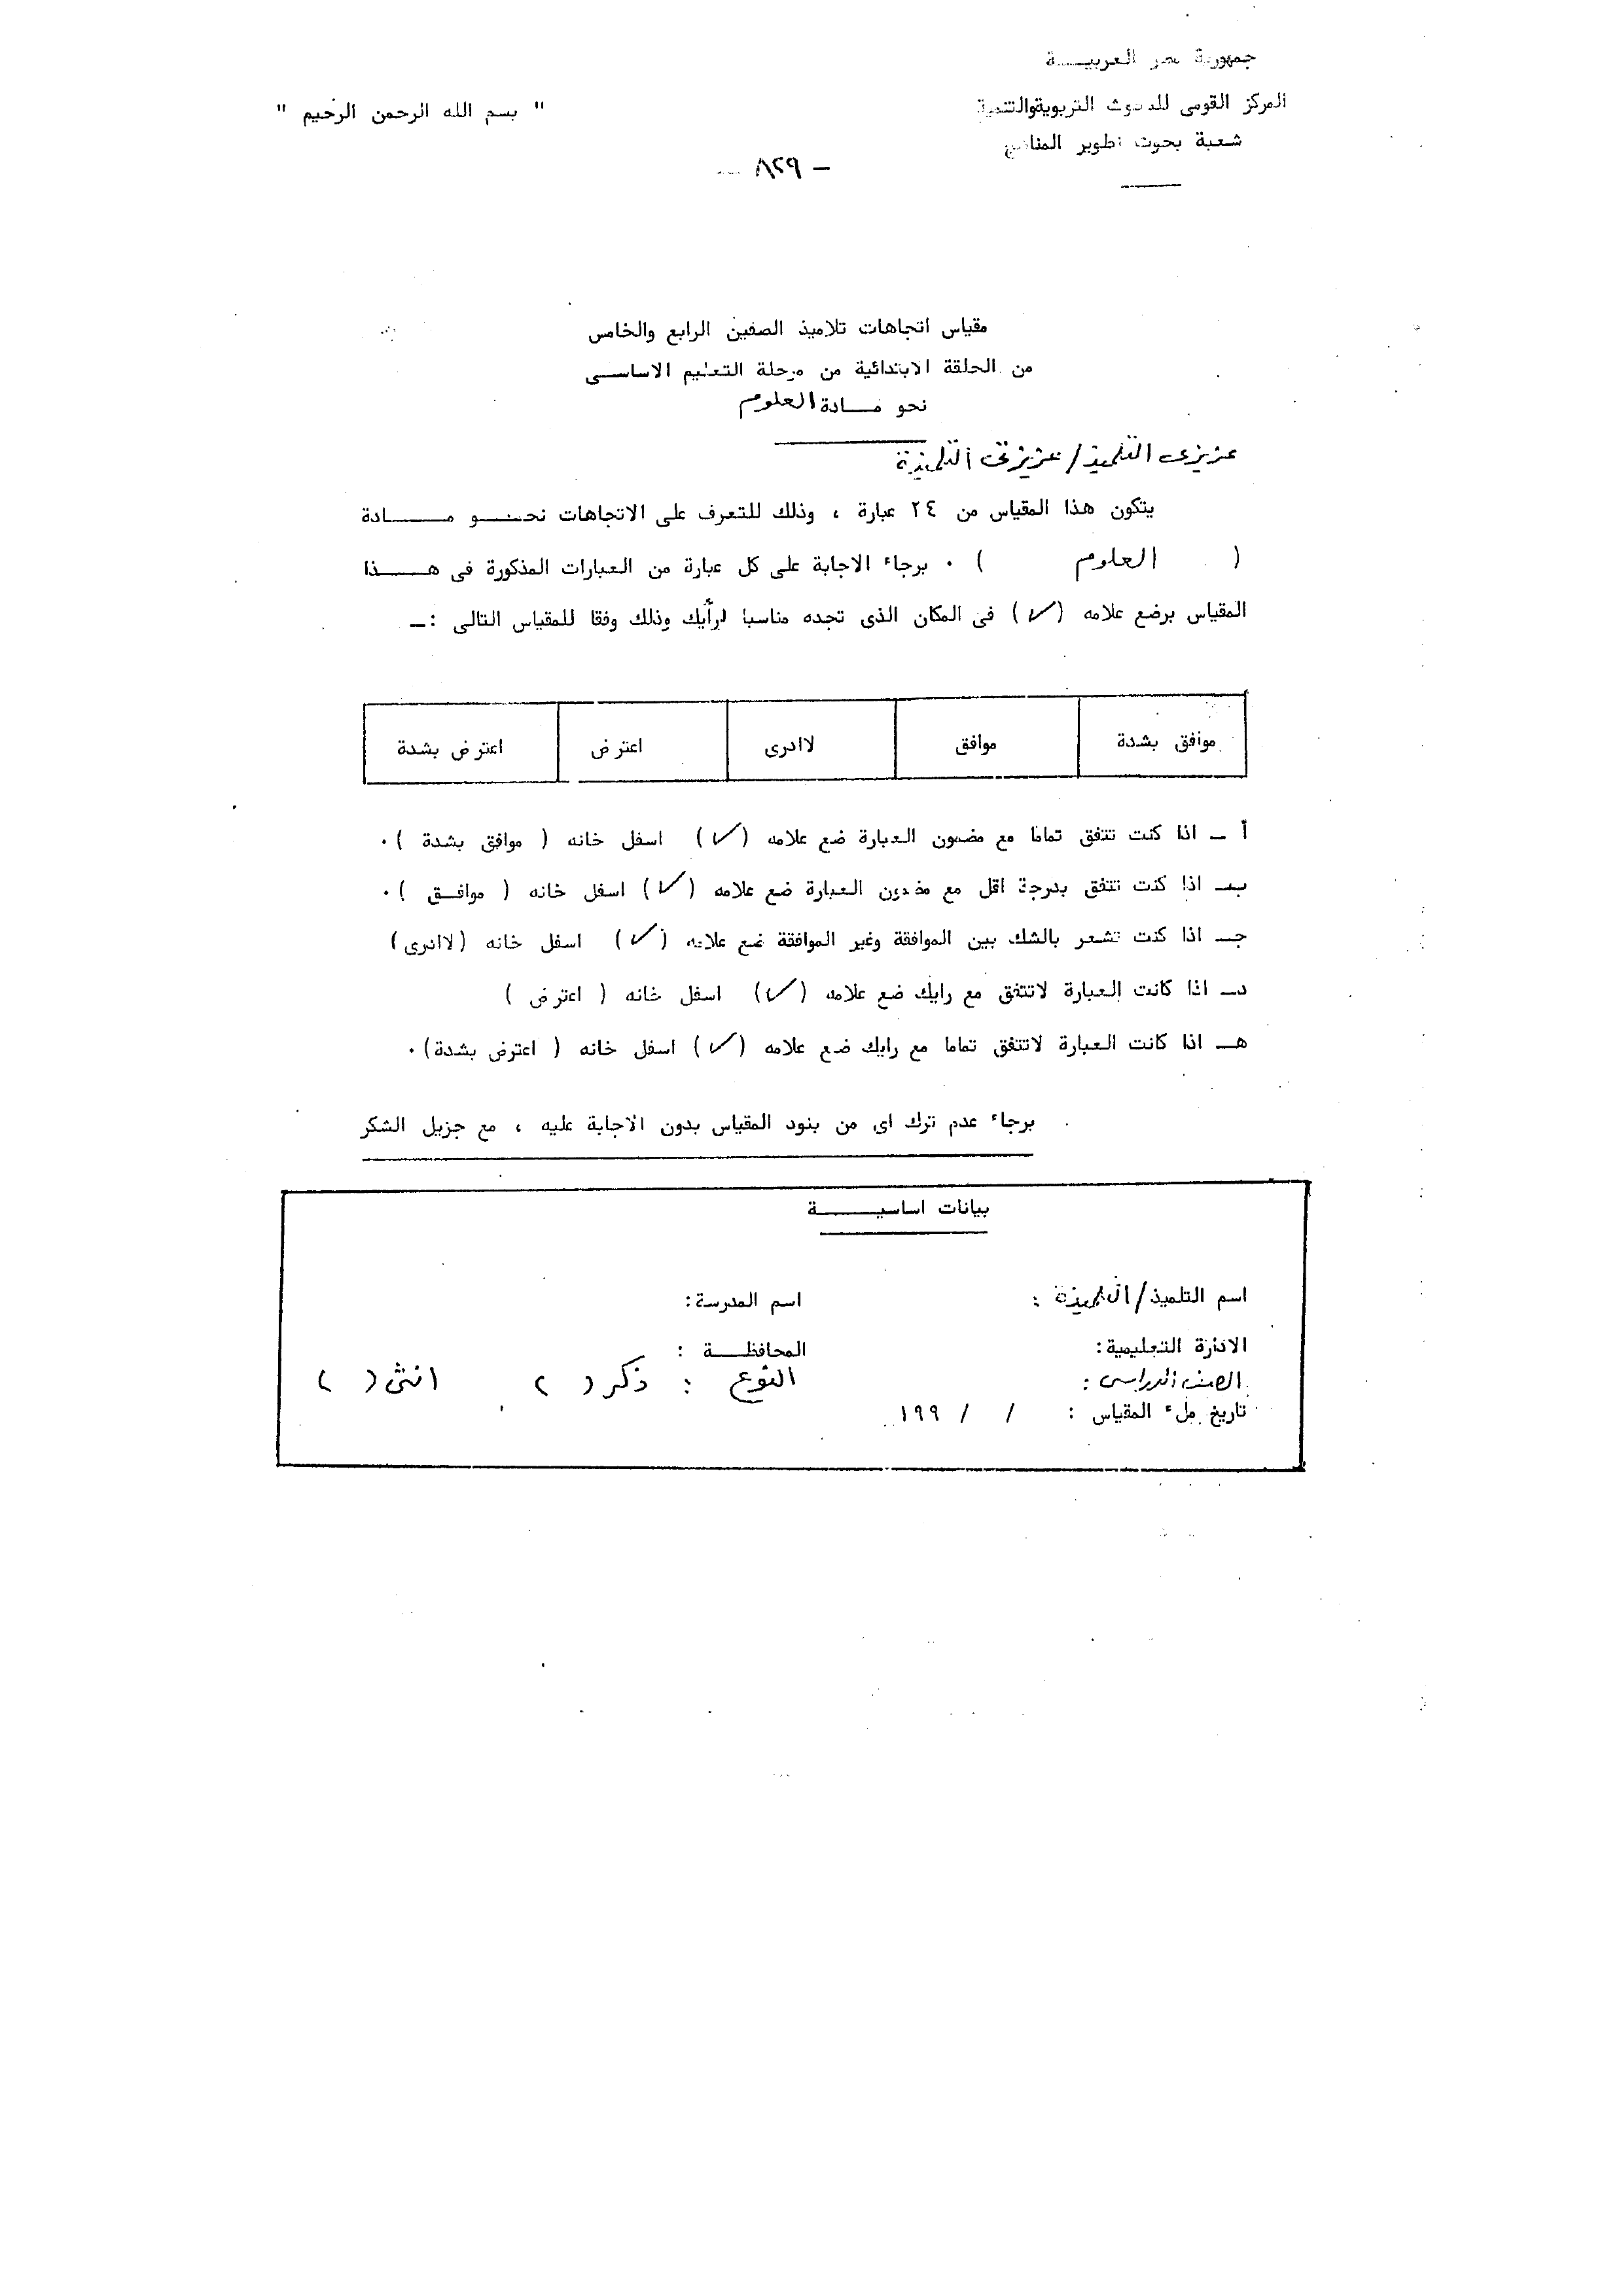 جمهورية مصر العربيـــة
المركز القومى للبحوث التربوية والتنمية
شعبة بحوث تطوير المناهج
" بسم الله الرحمن الرحيم "
- ٨٢٩ -
مقياس اتجاهات تلاميذ الصفين الرابع والخامس
من الحلقة الابتدائية من مرحلة التعليم الاساســى
نحو مــادة العلوم
عزيزى التلميذ / عزيزتى التلميذة
يتكون هذا المقياس من ٢٤ عبارة ، وذلك للتعرف على الاتجاهات نحــو مــــادة
( العلوم ) ٠ برجاء الاجابة على كل عبارة من العبارات المذكورة فى هــــذا
المقياس بوضع علامه (✓) فى المكان الذى تجده مناسبا لرأيك وذلك وفقا للمقياس التالى :ـ
موافق بشدة موافق لاادرى اعترض اعترض بشدة
أ ـ اذا كنت تتفق تماما مع مضمون العبارة ضع علامه (✓) اسفل خانه ( موافق بشدة )٠
بـ اذا كنت تتفق بدرجة اقل مع مضمون العبارة ضع علامه (✓) اسفل خانه ( موافــق )٠
جـ اذا كنت تشعر بالشك بين الموافقة وغير الموافقة ضع علامه (✓) اسفل خانه (لاادرى)
دـ اذا كانت العبارة لاتتفق مع رايك ضع علامه (✓) اسفل خانه ( اعترض )
هـ اذا كانت العبارة لاتتفق تماما مع رايك ضع علامه (✓) اسفل خانه ( اعترض بشدة)٠
برجاء عدم ترك اى من بنود المقياس بدون الاجابة عليه ، مع جزيل الشكر
بيانات اساسيـــــة
اسم التلميذ / التلميذة : اسم المدرسة:
الادارة التعليمية: المحافظــة :
الصف الدراسى : النوع : ذكر ( ) انثى ( )
تاريخ ملء المقياس : / / ١٩٩